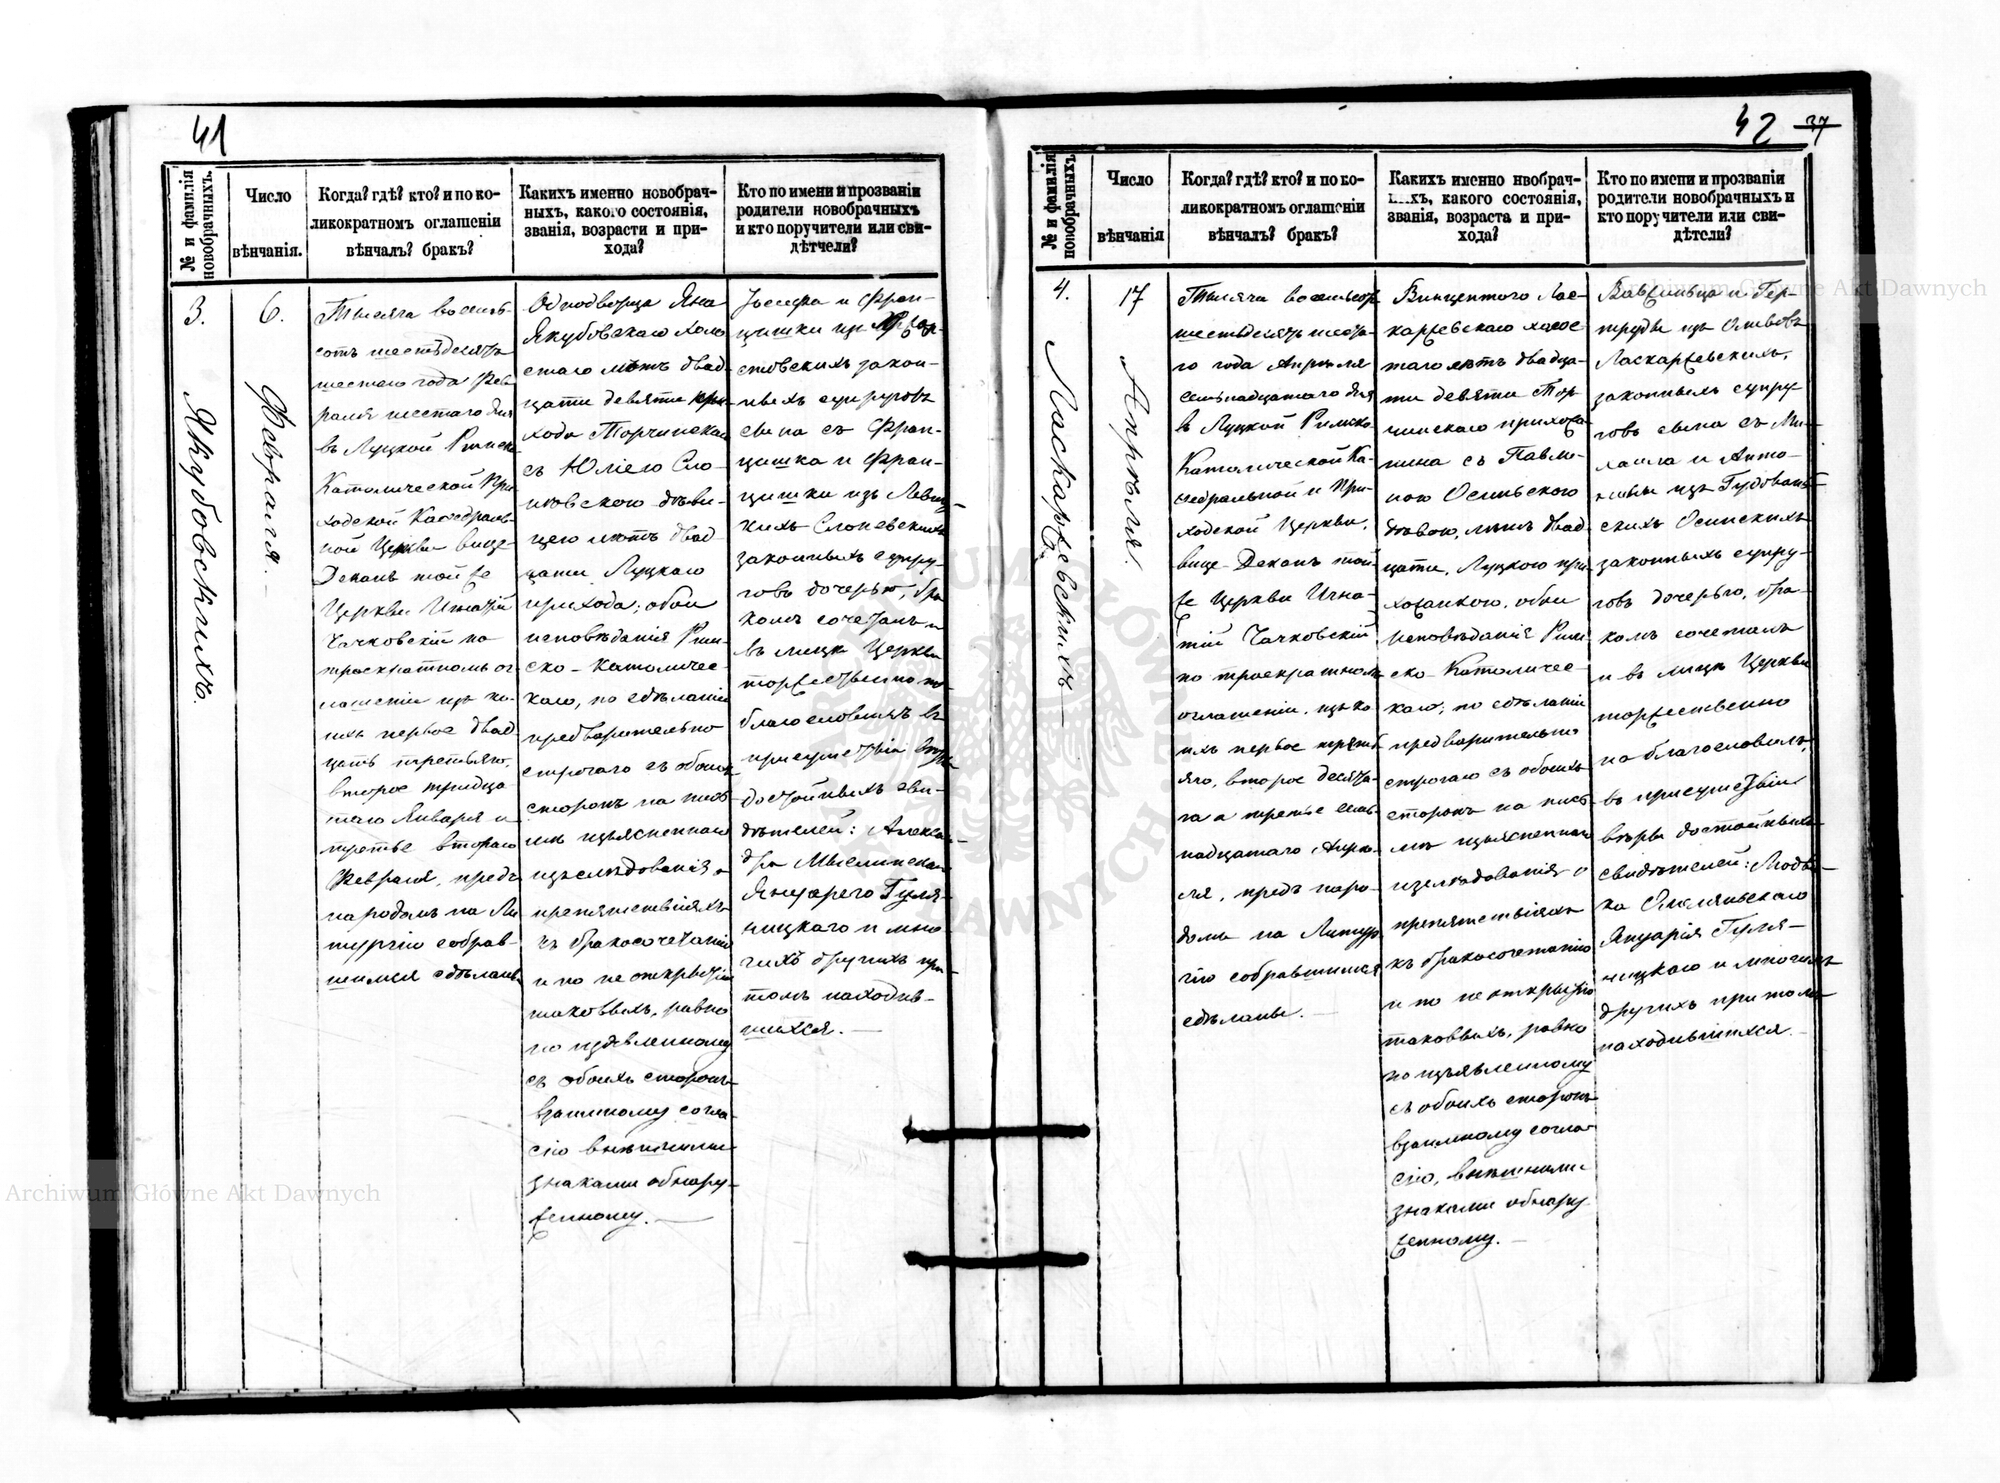 41
№ и фамилія новобрачныхъ.
Число
вѣнчанія.
Когда? гдѣ? кто? и по ко-
ликократномъ оглашеніи
вѣнчалъ? бракъ?
Какихъ именно новобрач-
ныхъ, какого состоянія,
званія, возрасти и при-
хода?
Кто по имени и прозваніи
родители новобрачныхъ
и кто поручители или сви-
дѣтчели?
3.
Якубовскихъ.
6.
Февраля.
Тысяча восемь-
сотъ шестьдесятъ
шестаго года Фев-
раля шестаго дня
въ Луцкой Римско
Католической При
ходской Каѳедраль-
ной Церкви вице-
Деканъ той же
Церкви Игнатій
Чачковскій по
троекратномъ ог-
лашеніи изъ ко-
ихъ первое двад-
цать третьяго,
второе тридца-
таго Января и
третье втораго
Февраля, предъ
народомъ на Ли-
тургію собрав-
шимся сдѣланы
Однодворца Яна
Якубовскаго холо
стаго лѣтъ двад
цати девяти при
хода Торчинскаго
съ Юліею Сло-
невскою дѣви-
цею лѣтъ двад
цати Луцкаго
прихода; обои
исповѣданія Рим-
ско-Католичес-
каго, по сдѣланіи
предварительно
строгаго съ обоихъ
сторонъ на пись
мѣ изъясненнаго
изслѣдованія о
препятствіяхъ
къ бракосочетанію
и по не открытію
таковыхъ, равно
по изъявленному
съ обоихъ сторонъ
взаимному согла-
сію внѣшними
знаками обнару-
женному.
Іосифа и Фран-
цишки изъ
стовскихъ закон-
ныхъ супруговъ
сына съ Фран-
цишка и Фран-
цишки изъ
кихъ Слоневскихъ
законныхъ супру-
говъ дочерью, бра
комъ сочеталъ и
въ лицѣ Церкви
торжественно по-
благословилъ въ
присутствіи вѣры
достойныхъ сви-
дѣтелей: Алексан-
дра Мыслинскаго
Януарего Гуля-
ницкаго и мно
гихъ другихъ при
томъ находив-
шихся.
42 37
№ и фамилія новобрачныхъ.
Число
вѣнчанія
Когда? гдѣ? кто? и по ко-
ликократномъ оглашеніи
вѣнчалъ? бракъ?
Какихъ именно нвобрач-
ныхъ, какого состоянія,
званія, возраста и при-
хода?
Кто по имени и прозваніи
родители новобрачныхъ и
кто поручители или сви-
дѣтели?
4.
Ласкаржевскихъ
17
Апрѣля.
Тысяча восемьсотъ
шестьдесятъ шеста-
го года Апрѣля
семьнадцатаго дня
въ Луцкой Римско
Католической Ка-
ѳедральной и При-
ходской Церкви,
вице-Деканъ той
же Церкви Игна-
тій Чачковскій
по троекратномъ
оглашеніи, изъ ко
ихъ первое треть
яго, второе десята-
го а третье семь
надцатаго Апрѣ-
ля, предъ наро-
домъ на Литур
гію собравшимся
сдѣланы.
Винцентого Лас-
каржевскаго холос
таго лѣтъ двадца-
ти девяти Тор
чинскаго прихожа
нина съ Павли-
ною Осиньского
вдовою, лѣтъ двад
цати, Луцкого при
хожанкою, обои
исповѣданія Рим
ско-Католичес
каго; по сдѣланіи
предварительно
строгаго съ обоихъ
сторонъ на пись
мѣ изъясненнаго
изслѣдованія о
препятствіяхъ
къ бракосочетанію
и по не открытію
таковыхъ, равно
по изъявленному
съ обоихъ сторонъ
взаимному согла-
сію, внѣшними
знаками обнару
женному.
Вавржинца и Гер-
труды изъ
Ласкаржевскихъ,
законныхъ супру-
говъ сына съ Ми-
хаила и Анто-
нины изъ
скихъ Осинскихъ
законныхъ супру-
говъ дочерью, бра-
комъ сочеталъ
и въ лицѣ Церкви
торжественно
поблагословилъ,
въ присутствіи
вѣры достойныхъ
свидѣтелей: Людви-
ка
Януарія Гуля-
ницкаго и многихъ
другихъ при томъ
находившихся.
Archiwum Główne Akt Dawnych
Archiwum Główne Akt Dawnych